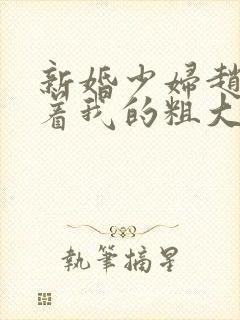 新婚少婦趙
着我的粗大
執筆摘星